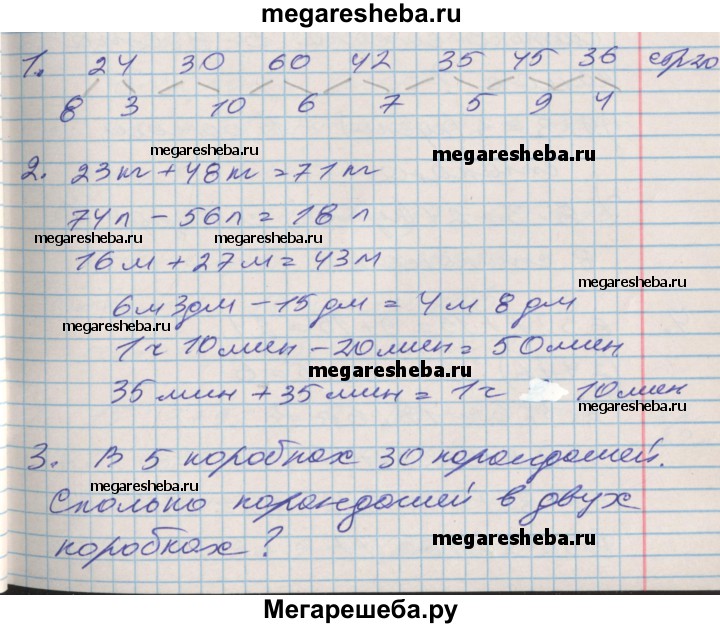 megaresheba.ru
1. 24 30 60 42 35 45 36 стр20
8 3 10 6 7 5 9 4
megaresheba.ru
megaresheba.ru
2. 23кг + 48кг = 71кг
74л - 56л = 18 л
megaresheba.ru megaresheba.ru
16м + 27м = 43м
megaresheba.ru
6м 3дм - 15 дм = 4м 8 дм
megaresheba.ru
1ч 10мин - 20мин = 50мин
megaresheba.ru
35мин + 35мин = 1ч 10мин
megaresheba.ru
3. В 5 коробках 30 корандашей.
megaresheba.ru
Сколько корандашей в двух
коробках?
megaresheba.ru
Мегарешеба.ру